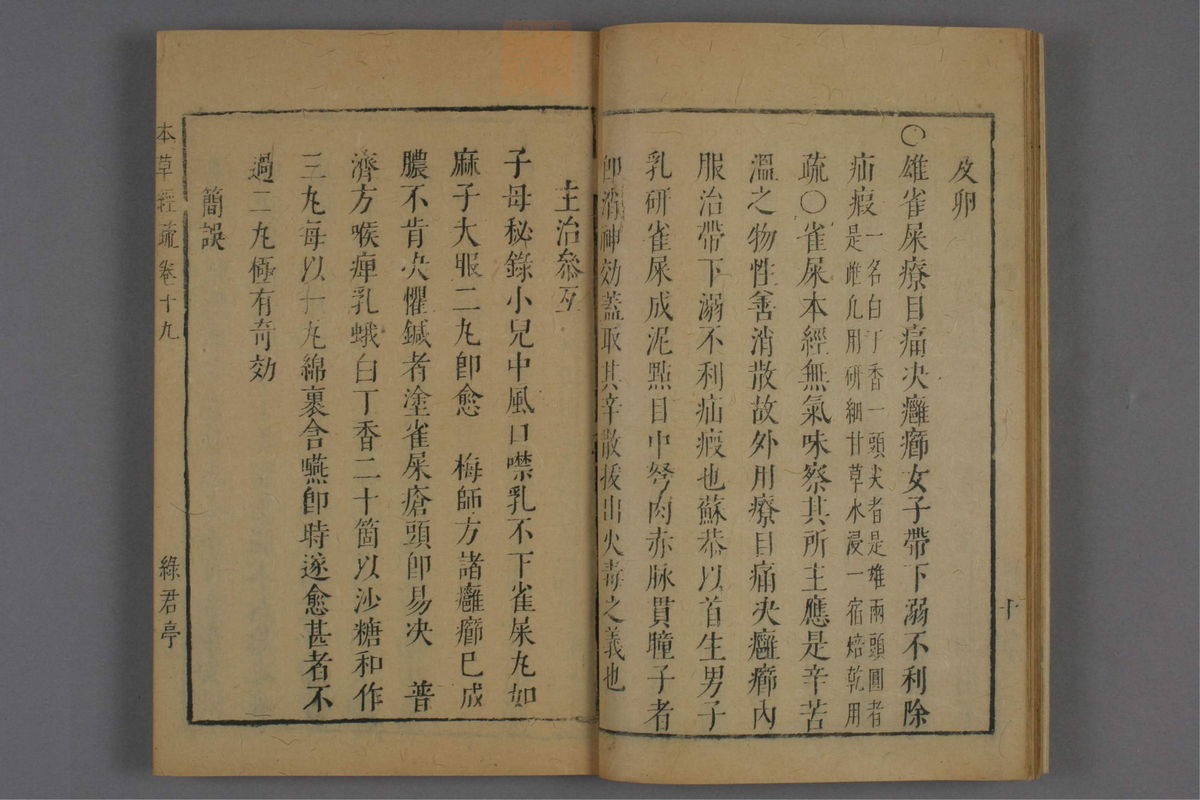 及卵
○雄雀屎療目痛决癰癤女子帶下溺不利除
疝瘕一名白丁香一頭尖者是雄兩頭圓者
是雌凡用研細甘草水浸一宿焙乾用
疏○雀屎本經無氣味察其所主應是辛苦
溫之物性善消散故外用療目痛决癰癤内
服治帶下溺不利疝瘕也蘇恭以首生男子
乳研雀屎成泥點目中弩肉赤脉貫瞳子者
卽消神効蓋取其辛散拔出火毒之義也
十
主治叅互
子母秘錄小兒中風口噤乳不下雀屎丸如
麻子大服二丸卽愈　梅師方諸癰癤巳成
膿不肯决懼鍼者塗雀屎瘡頭卽易决　普
濟方喉痺乳蛾白丁香二十箇以沙糖和作
三丸每以一丸綿裹含嚥卽時遂愈甚者不
過二丸極有奇効
簡誤
本草經疏　卷十九　綠君亭